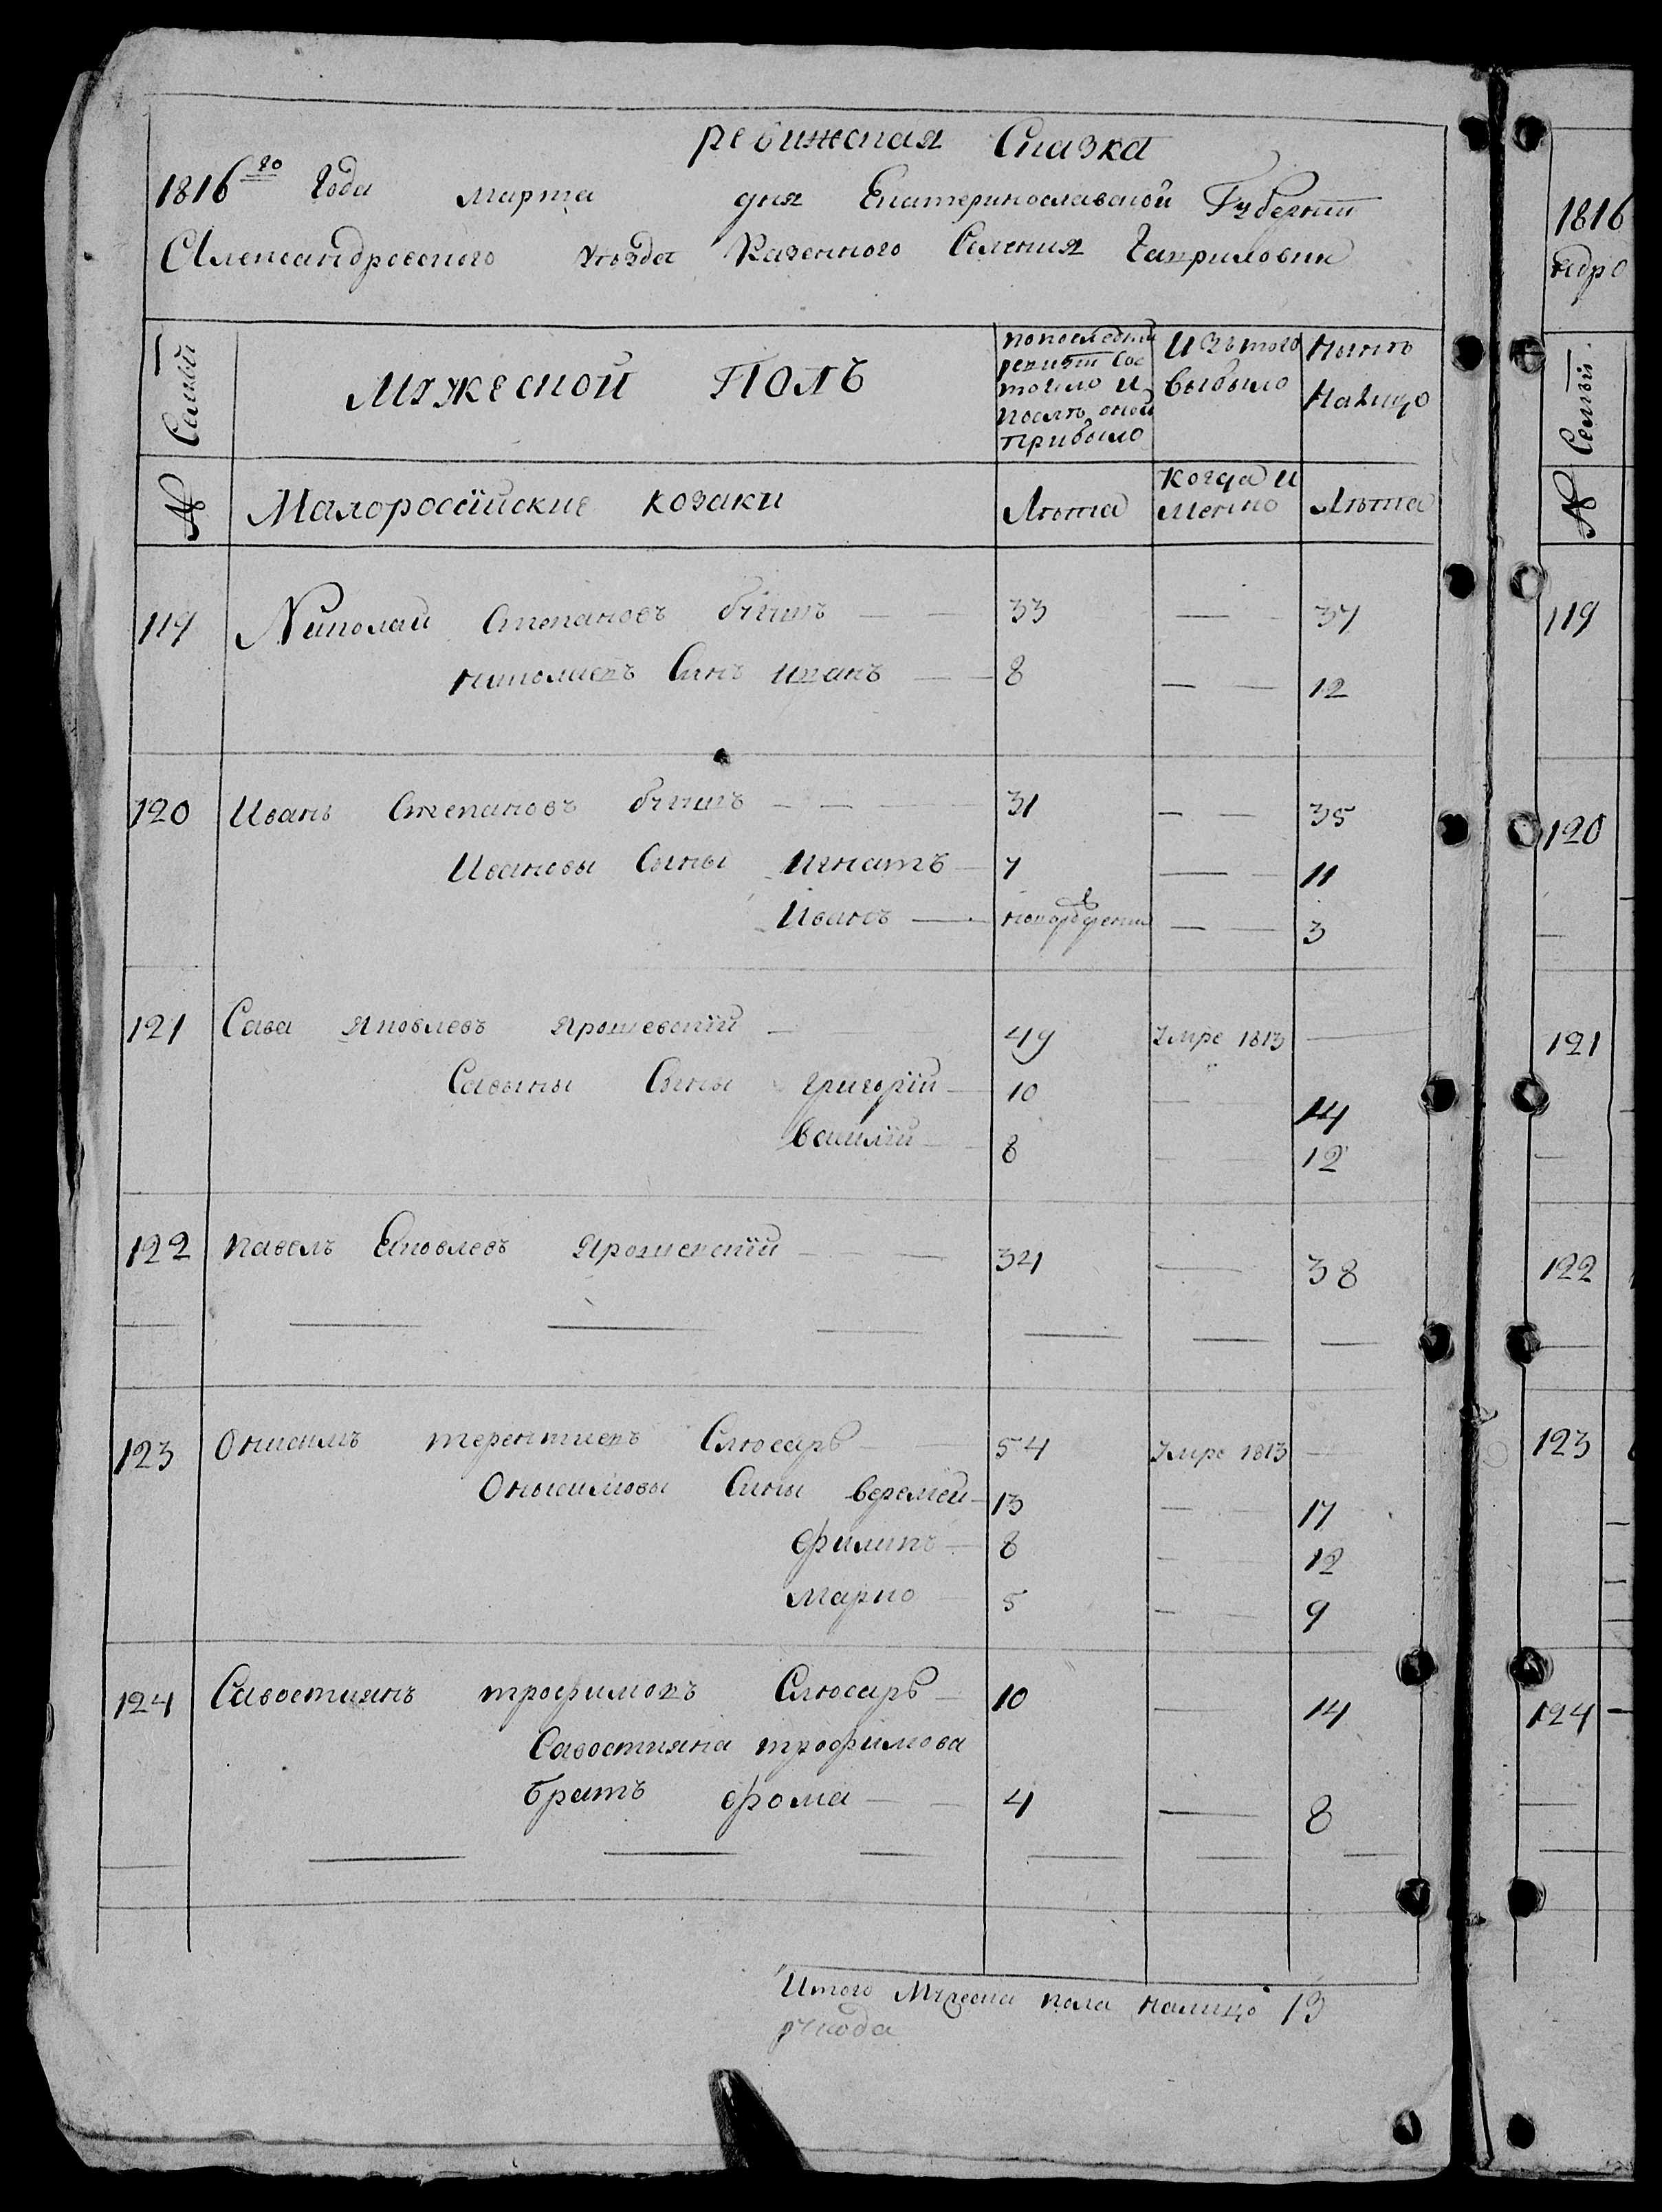 ревижская Сказка
1816го Года марта дня Екатеринославской Губернїи
Александровского уѣзда Казенного Селения Гавриловки
№ Семьи
мужеской Полъ
по последней
ревизїи сос
тояло и
послѣ оной
прибыло
Изъ того
выбыло
Нынѣ
налицо
Малоросейские козаки
Лѣта
когда и
менно
Лѣта
119 Николай Степановъ 33 37
николаевъ Синъ иванъ 8 12
120 Иванъ Степановъ 31 35
Ивановы Сыны игнатъ 7 11
Иванъ новорожден 3
121 Сава яковлевъ ярошевскїй 49 Умре 1813
Савины Сыны григорїй 10 14
василїй 8 12
122 павелъ Яковлевъ ярошевскїй 34 38
123 Онисимъ терентиевъ Слюсаръ 54 Умре 1813
Онысимовы Сины веремей 13 17
филипъ 8 12
марко 5 9
124 Савостиянъ трофимовъ Слюсаръ 10 14
Савостияна трофимова
братъ фома 4 8
Итого Мужеска пола налицо 13
1816
119
120
121
122
123
124